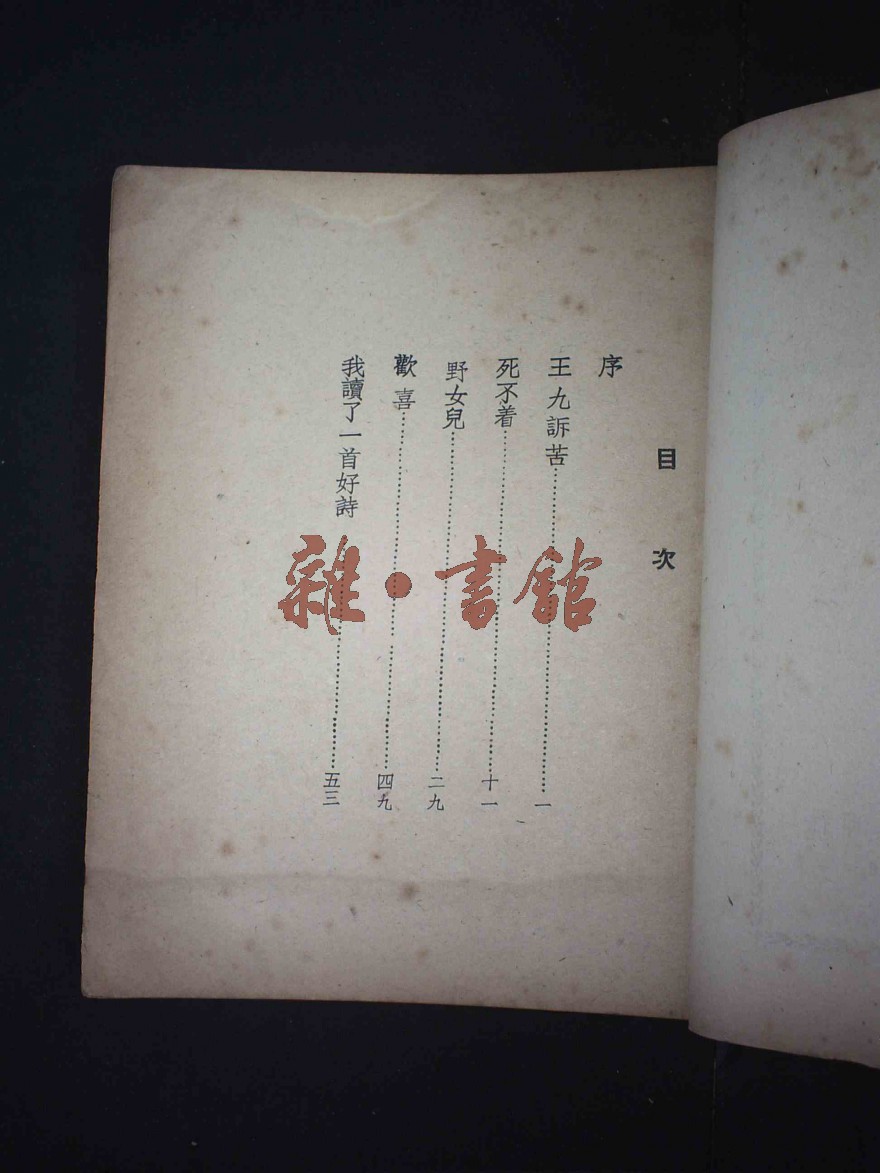 目次
序
王九訴苦……一
死不着……十一
野女兒……二九
歡喜……四九
我讀了一首好詩……五三
雜·書館